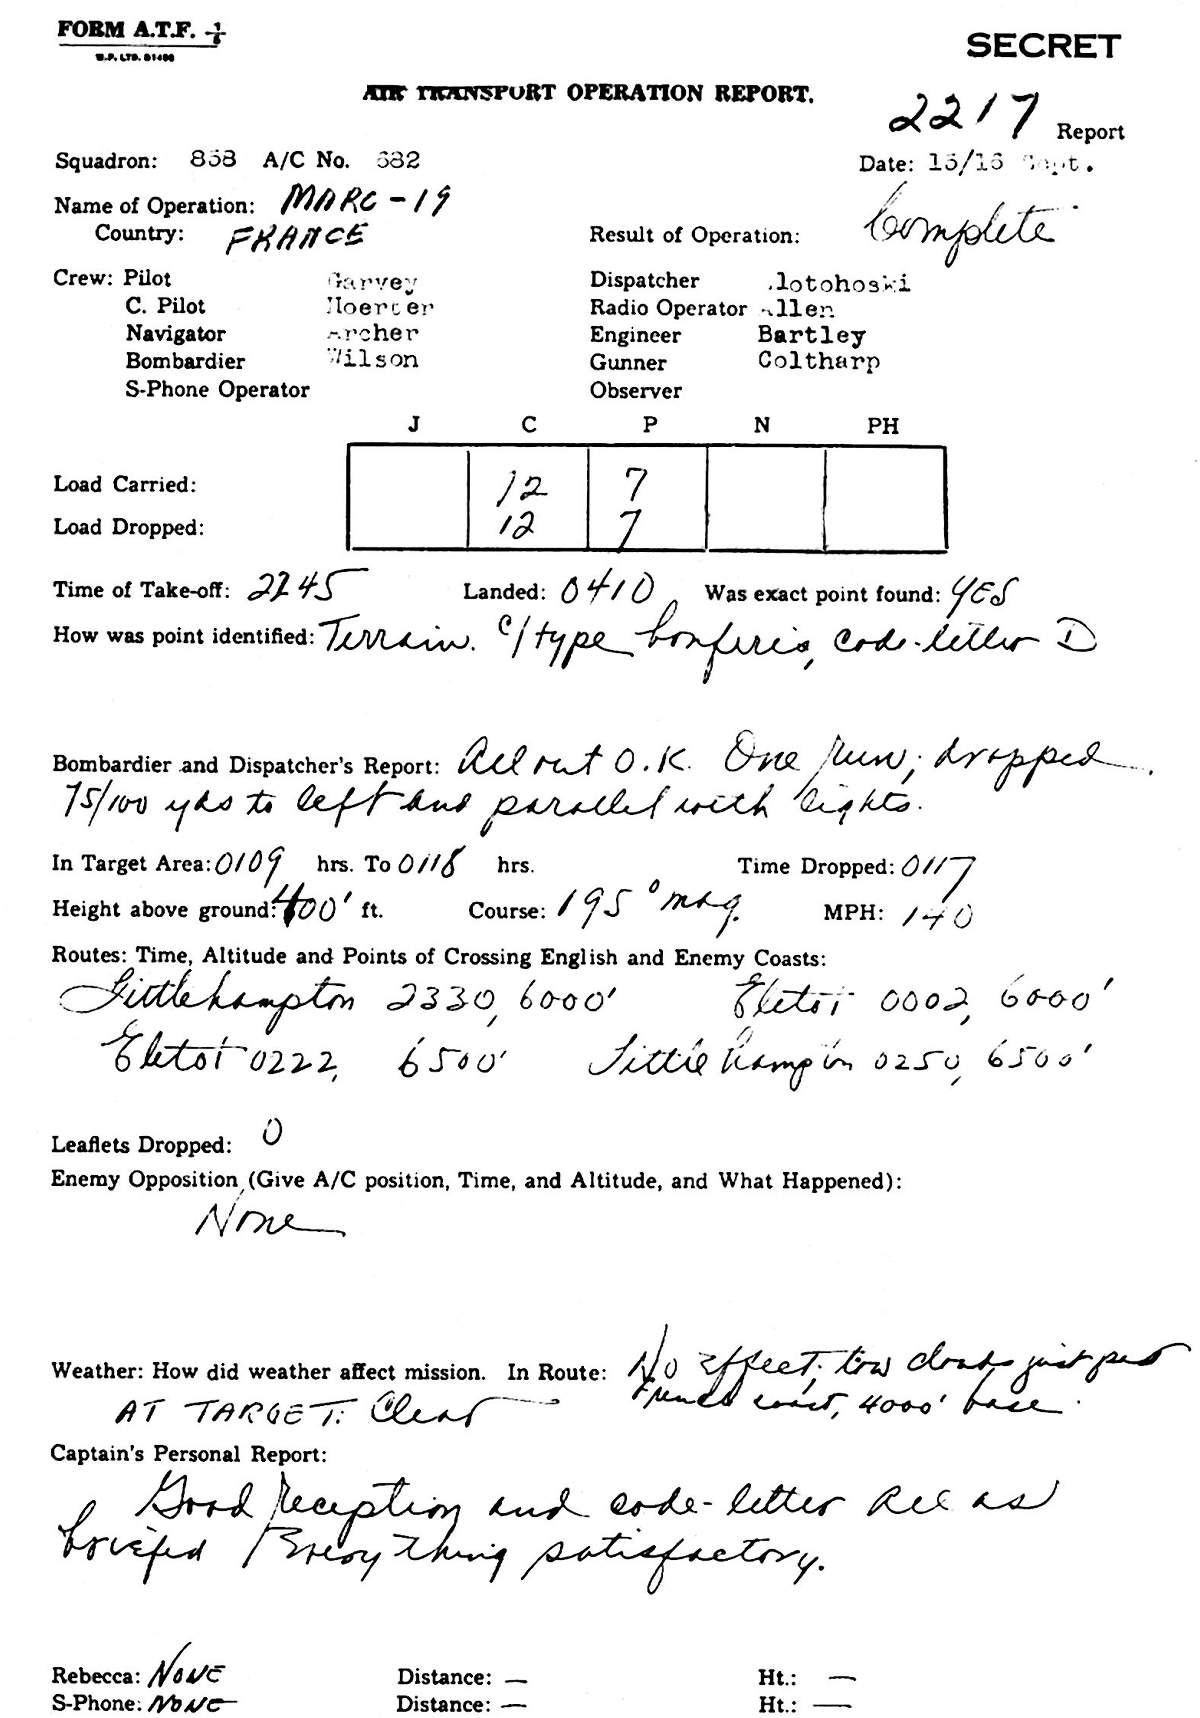 FORM A.T.F. 1/6
W.P. LTD. 51466
SECRET
AIR TRANSPORT OPERATION REPORT.
2217 Report
Squadron: 858 A/C No. 682 Date: 15/16 Sept.
Name of Operation: MARC-19
Country: FRANCE Result of Operation: Complete
Crew: Pilot Garvey Dispatcher lotohoski
C. Pilot Hoerter Radio Operator Allen
Navigator Archer Engineer Bartley
Bombardier Wilson Gunner Coltharp
S-Phone Operator Observer
J C P N PH
Load Carried: 12 7
Load Dropped: 12 7
Time of Take-off: 2245 Landed: 0410 Was exact point found: YES
How was point identified: Terrain. C/type bonfires, code-letter D
Bombardier and Dispatcher's Report: All out O.K. One run; dropped
75/100 yds to left and parallel with lights.
In Target Area: 0109 hrs. To 0118 hrs. Time Dropped: 0117
Height above ground: 400' ft. Course: 195° mag. MPH: 140
Routes: Time, Altitude and Points of Crossing English and Enemy Coasts:
Littlehampton 2330, 6000' Eletot 0002, 6000'
Eletot 0222, 6500' Littlehampton 0250, 6500'
Leaflets Dropped: 0
Enemy Opposition (Give A/C position, Time, and Altitude, and What Happened):
None
Weather: How did weather affect mission. In Route: No effect; low clouds just past
French coast, 4000' base.
AT TARGET: Clear
Captain's Personal Report:
Good reception and code-letter all as
briefed Everything satisfactory.
Rebecca: NONE Distance: — Ht.: —
S-Phone: NONE Distance: — Ht.: —